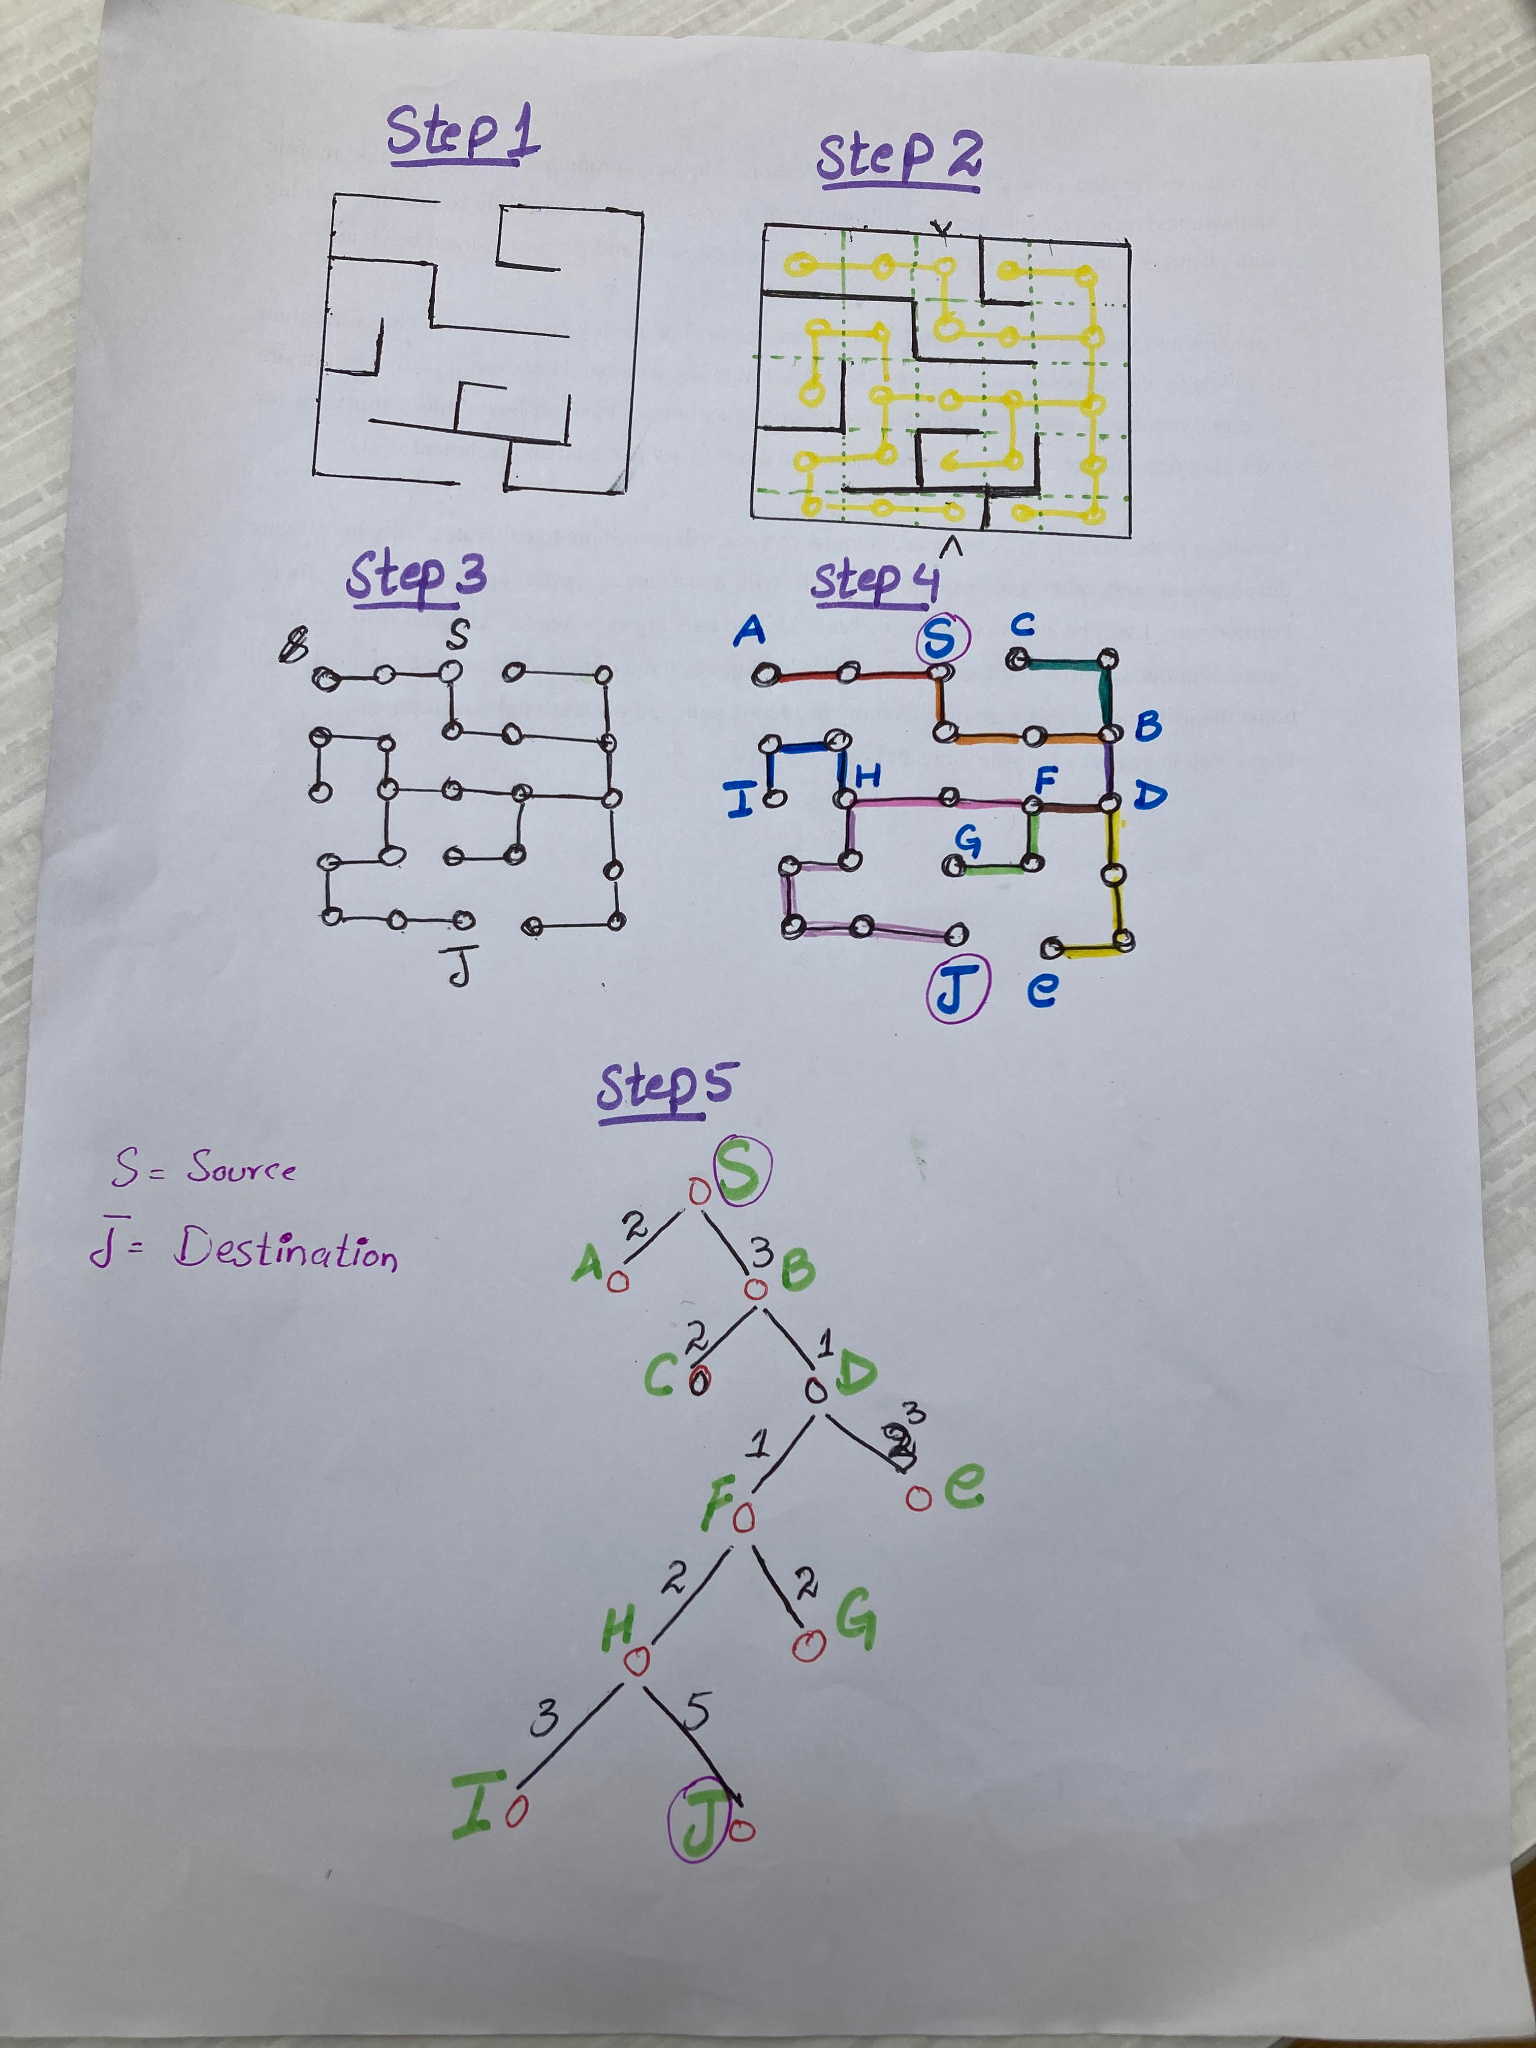 Step 1
Step 2
Step 3
S
J
Step 4
A
S
C
B
I
H
F
D
G
J
e
Step 5
S = Source
J = Destination
S
2
3
A
B
2
1
C
D
1
3
F
e
2
2
H
G
3
5
I
J